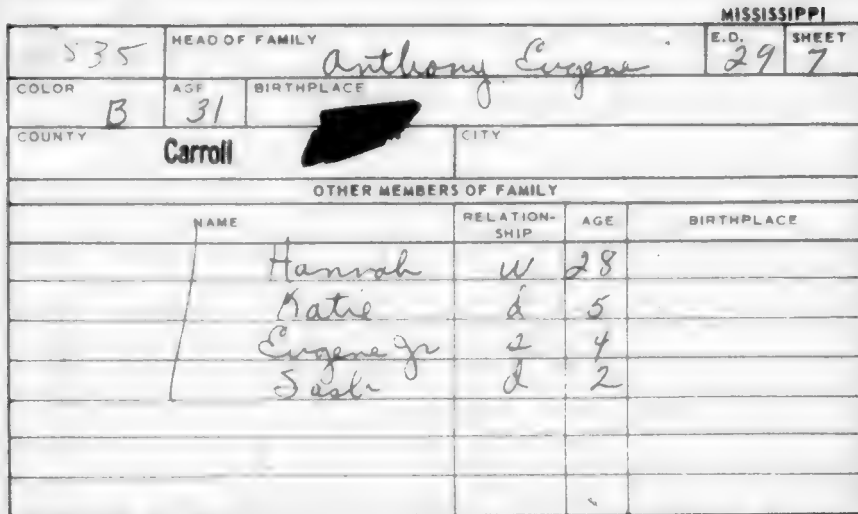 MISSISSIPPI
535 HEAD OF FAMILY Anthony Eugene E.D. 29 SHEET 7
COLOR B AGE 31 BIRTHPLACE
COUNTY Carroll CITY
OTHER MEMBERS OF FAMILY
NAME RELATION-SHIP AGE BIRTHPLACE
Hannah W 28
Katie d 5
Eugene Jr s 4
d 2